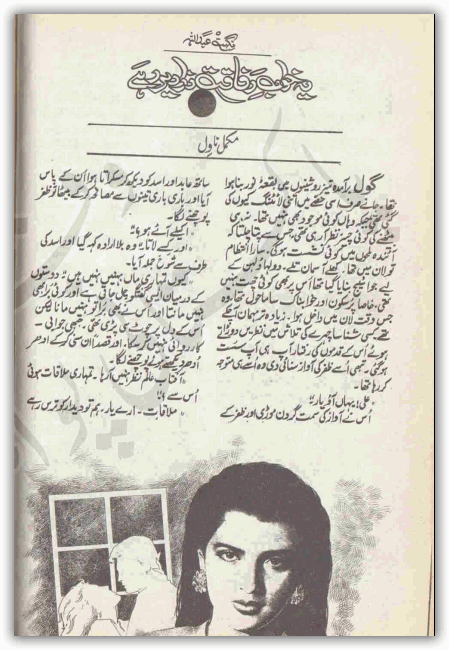 نگہت عبداللہ
یہ خواب رفاقت ذرا دیر رہے
مکمل ناول
گول برآمدہ تیز روشنیوں میں بقعۂ نور بنا ہوا
تھا۔ جانے صرف اسی حصے میں اتنی لائٹنگ کیوں کی
گئی تھی جبکہ وہاں کوئی موجود بھی نہیں تھا۔ نہ ہی
بیٹھنے کی کوئی چیز نظر آ رہی تھی جس سے پتا چلتا کہ
آئندہ لمحوں میں کوئی نشست ہو گی۔ سارا انتظام
تو لان میں تھا۔ کھلے آسمان تلے۔ دولہا دلہن کے
لیے جو اسٹیج بنایا گیا تھا اس پر بھی کوئی چھت نہیں
تھی، خاصا پرسکون اور خوابناک سا ماحول تھا۔ وہ
جس وقت لان میں داخل ہوا۔ زیادہ تر مہمان آ چکے
تھے کسی شناسا چہرے کی تلاش میں نظریں دوڑاتے
ہوئے اس کے قدموں کی رفتار آپ ہی آپ سست
ہو گئی۔ تبھی اسے ظفر کی آواز سنائی دی وہ اسے ہی متوجہ
کر رہا تھا۔
"علی! یہاں آؤ یار"
اس نے آواز کی سمت گردن موڑی اور ظفر کے
ساتھ عابد اور اسد کو دیکھ کر مسکراتا ہوا ان کے پاس
آیا اور باری باری تینوں سے مصافحہ کر کے بیٹھا تو ظفر
پوچھنے لگا۔
"اکیلے آئے ہو؟"
"اور کسے لاتا" وہ بلا ارادہ کہہ گیا اور اسد کی
طرف سے شوخ جملہ آیا۔
"کیوں تمہاری ماں بہنیں نہیں ہیں" دوستوں
کے درمیان ایسی گفتگو چل جاتی ہے اور کوئی برا بھی
نہیں مانتا اور اس نے بھی برا تو نہیں مانا لیکن
اس کے دل پر چوٹ سی پڑی تھی، جبھی جوابی
کارروائی نہیں کر سکا، اور قصداً ان سنی کر کے ادھر
ادھر دیکھتے ہوئے پوچھنے لگا۔
"آفتاب عالم نظر نہیں آ رہا۔ تمہاری ملاقات ہوئی
اس سے؟"
"ملاقات۔ ارے یار، ہم تو دیدار کو ترس رہے